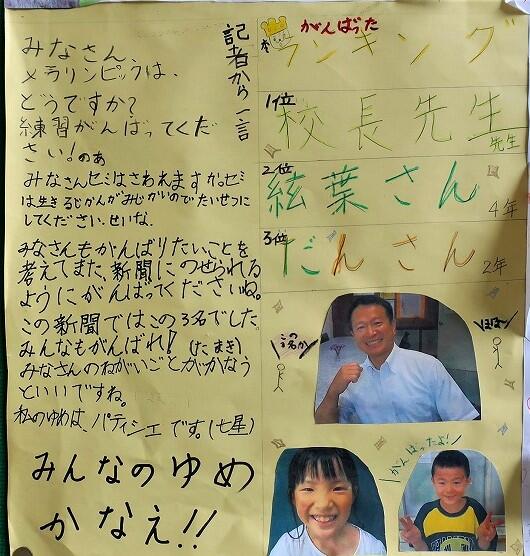 記者から一言
みなさん、
メラリンピックは、
どうですか?
練習がんばってくだ
さい!のあ
みなさんセミはさわれますか。セミ
は生きるじかんがみじかいのでたいせつに
してください。せいな.
みなさんもがんばりたいことを
考えてまた新聞にのせられる
ようにがんばってくださいね。
この新聞ではこの3名でした
みんなもがんばれ!(たまき)
みなさんのねがいごとがかなう
といいですね。
私のゆめは、パティシエです。(七星)
みんなのゆめ
かなえ!!
がんばった
ランキング
1位
校長先生
先生
2位
絃葉さん
4年
3位
だんさん
2年
この
3名か
ほほ〜
がんばったよ!